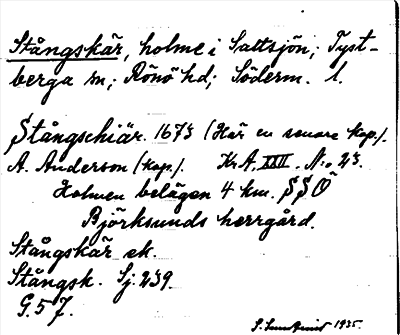 Stångskär, holme i Saltsjön; Tyst-
berga sn; Rönö hd; Söderm. l.
Stångschiär. 1673 (Här en senare kop.).
A. Anderson (kop.). Kr.A. XXII. N:o 23.
Holmen belägen 4 km. SSO
Björksunds herrgård.
Stångskär ek.
Stångsk. Sj. 239.
G. 57.
1935.